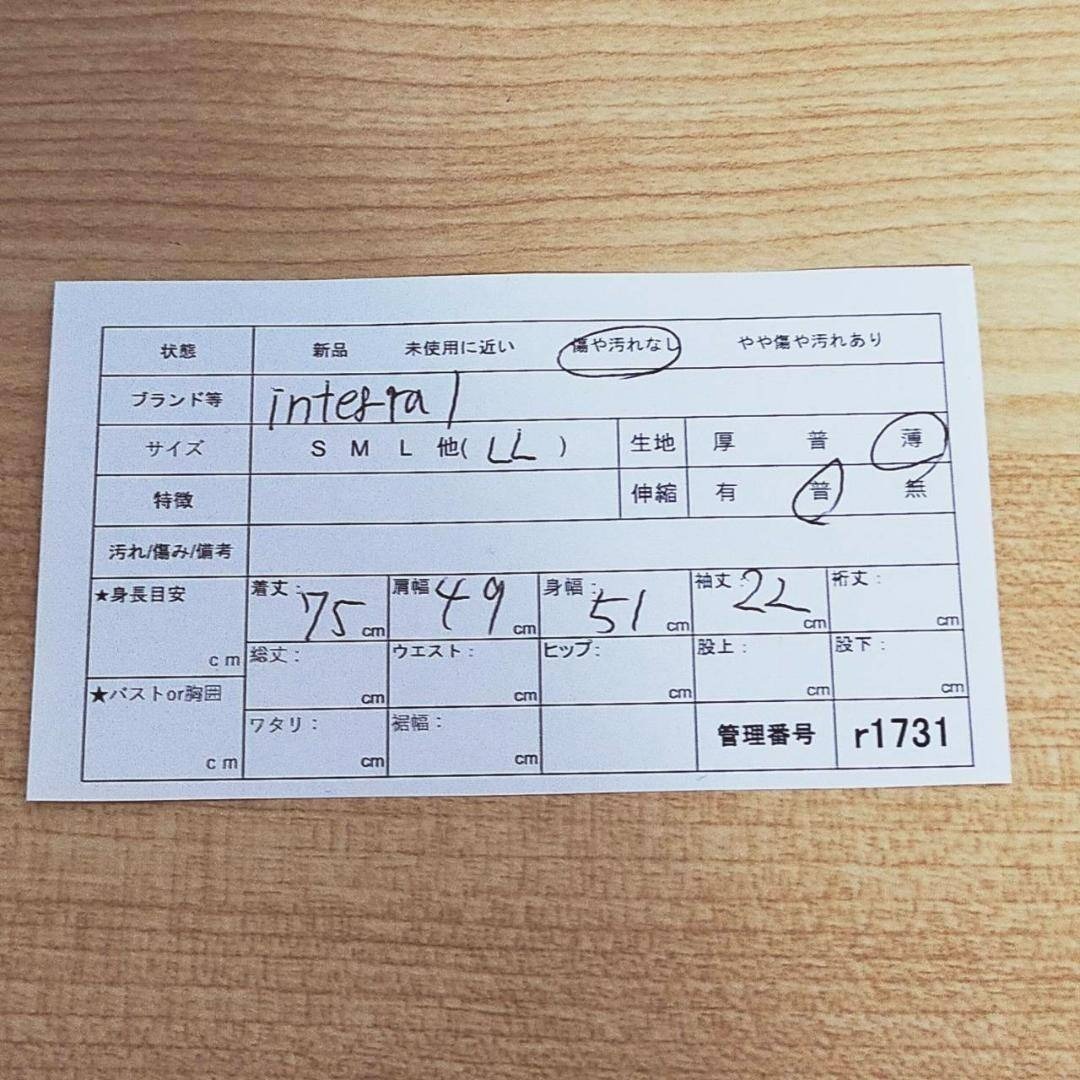 状態 新品 未使用に近い 傷や汚れなし やや傷や汚れあり
ブランド等 integral
サイズ S M L 他( LL ) 生地 厚 普 薄
特徴 伸縮 有 普 無
汚れ/傷み/備考
★身長目安 cm
着丈: 75 cm 肩幅 49 cm 身幅: 51 cm 袖丈: 22 cm 裄丈: cm
総丈: cm ウエスト: cm ヒップ: cm 股上: cm 股下: cm
★バストor胸囲 cm
ワタリ: cm 裾幅: cm 管理番号 r1731